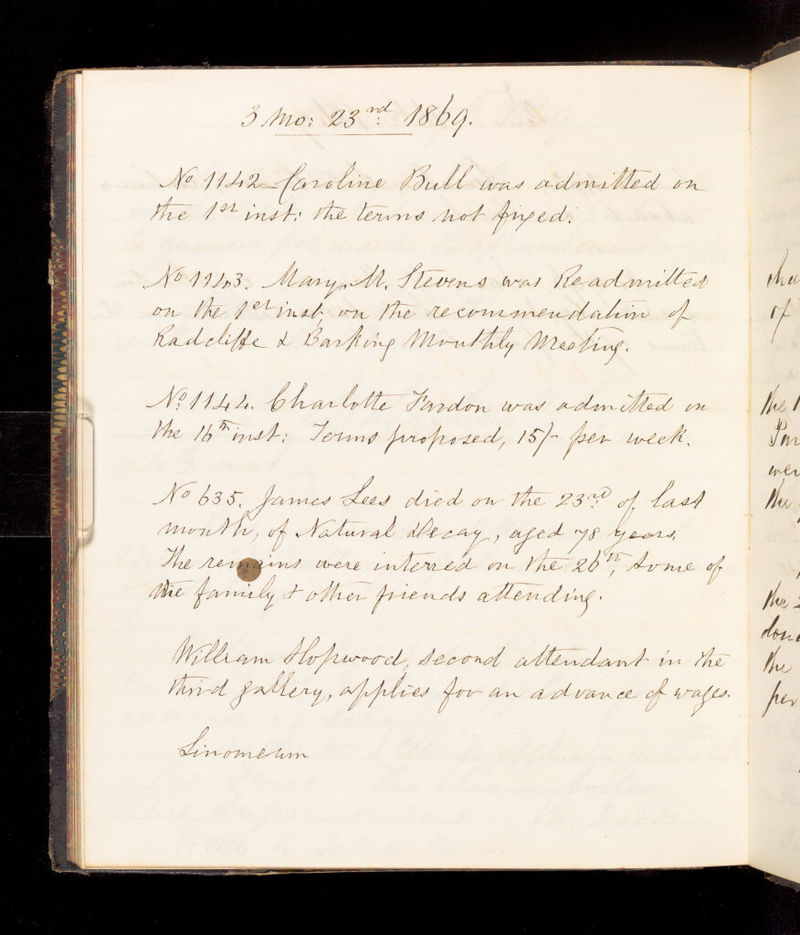 3 Mo: 23rd 1869.
No 1142 Caroline Bull was admitted on
the 1st inst: the terms not fixed.
No 1143. Mary M. Stevens was Readmitted
on the 1st inst, on the recommendation of
Radcliffe & Barking Monthly Meeting.
No 1144. Charlotte Fardon was admitted on
the 16th inst: Terms proposed, 15/- per week.
No 635. James Lees died on the 23rd of last
month, of Natural Decay, aged 78 years.
The remains were interred on the 26th, some of
the family & other friends attending.
William Hopwood, second attendant in the
third gallery, applies for an advance of wages.
Linomeum